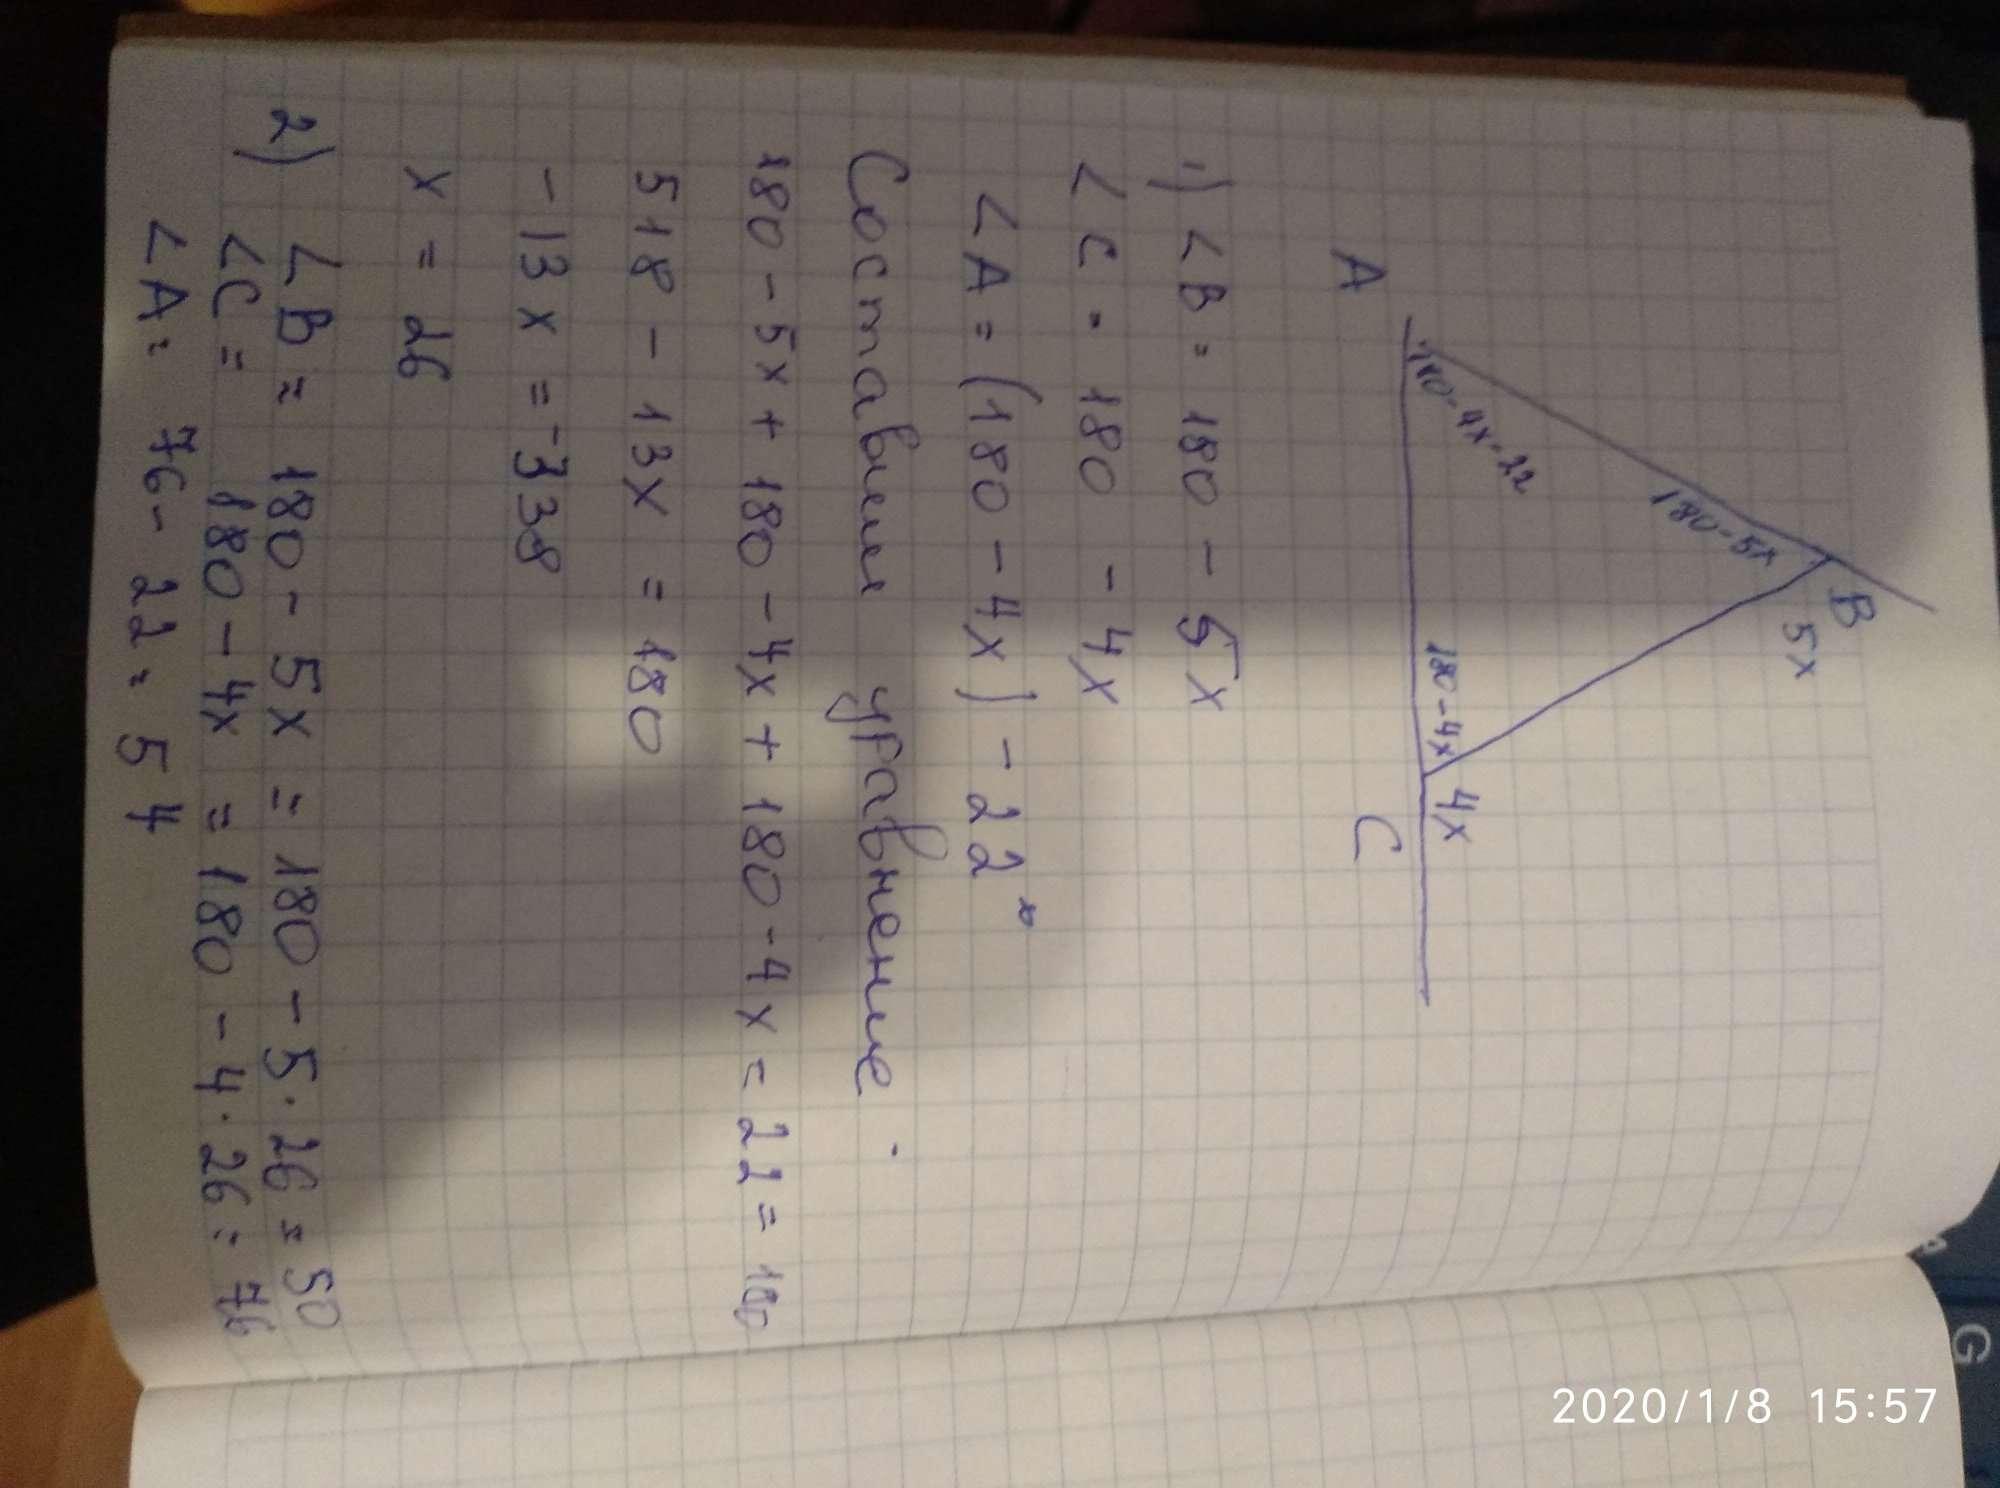 B
5x
180-5x
180-4x-22
180-4x
4x
A
C
1) ∠B = 180 - 5x
∠C = 180 - 4x
∠A = (180 - 4x) - 22°
Составим уравнение:
180 - 5x + 180 - 4x + 180 - 4x = 22 = 180
518 - 13x = 180
-13x = -338
x = 26
2) ∠B = 180 - 5x = 180 - 5·26 = 50
∠C = 180 - 4x = 180 - 4·26 = 76
∠A = 76 - 22 = 54
G
2020/1/8 15:57